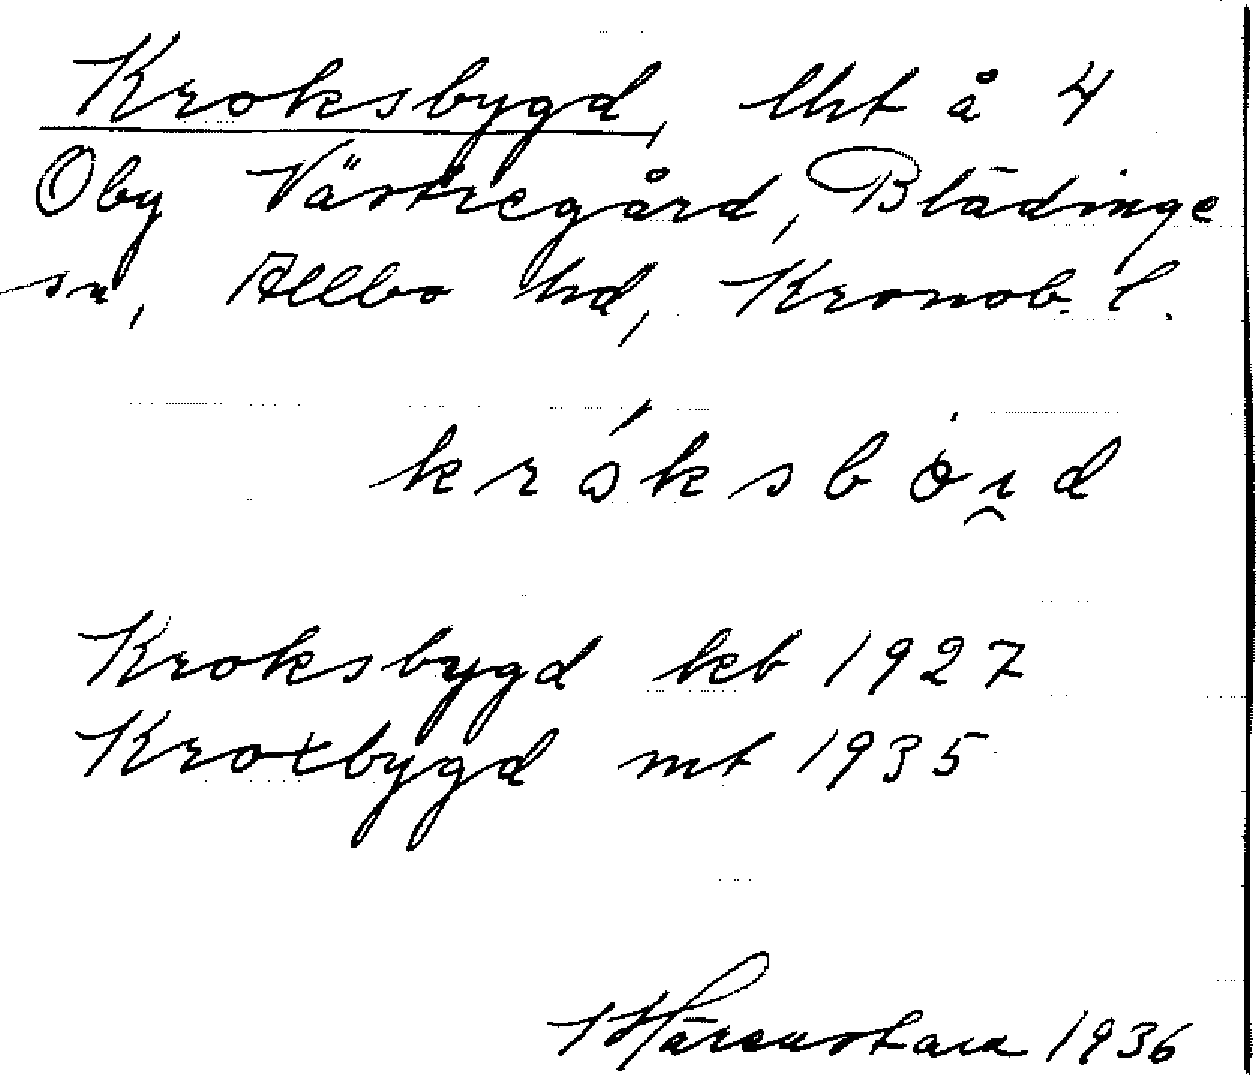 Kroksbygd, lht å 4
Oby Västregård, Blädinge
sn, Allbo hd, Kronob. l.
króksbö i̯ d
Kroksbygd kb 1927
Kroxbygd mt 1935
1936